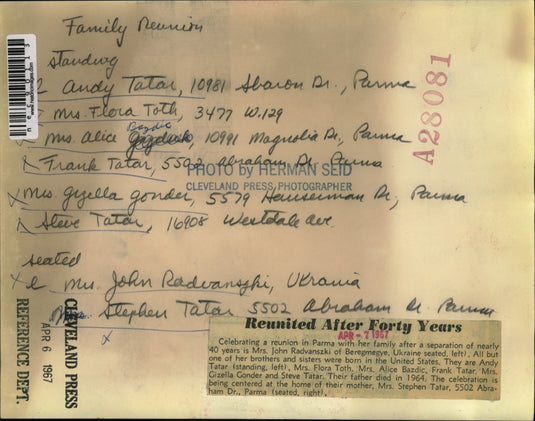 Family Reunion
Standing
Andy Tatar, 10981 Sharon Dr., Parma
Mrs. Flora Toth, 3477 W.129
Mrs. Alice Bazdic, 10991 Magnolia Dr., Parma
Frank Tatar, 5502 Abraham Dr. Parma
PHOTO by HERMAN SEID
CLEVELAND PRESS PHOTOGRAPHER
Mrs. Gizella Gonder, 5579 Hauserman Dr., Parma
Steve Tatar, 16908 Westdale Ave.
seated
Mrs. John Radvanszki, Ukrania
Mrs. Stephen Tatar 5502 Abraham Dr. Parma
A28081
CLEVELAND PRESS
APR 6 1967
REFERENCE DEPT.
Reunited After Forty Years
APR - 7 1967
Celebrating a reunion in Parma with her family after a separation of nearly
40 years is Mrs. John Radvanszki of Beregmegye, Ukraine seated, left). All but
one of her brothers and sisters were born in the United States. They are Andy
Tatar (standing, left), Mrs. Flora Toth, Mrs. Alice Bazdic, Frank Tatar, Mrs.
Gizella Gonder and Steve Tatar. Their father died in 1964. The celebration is
being centered at the home of their mother, Mrs. Stephen Tatar, 5502 Abra-
ham Dr., Parma (seated, right).